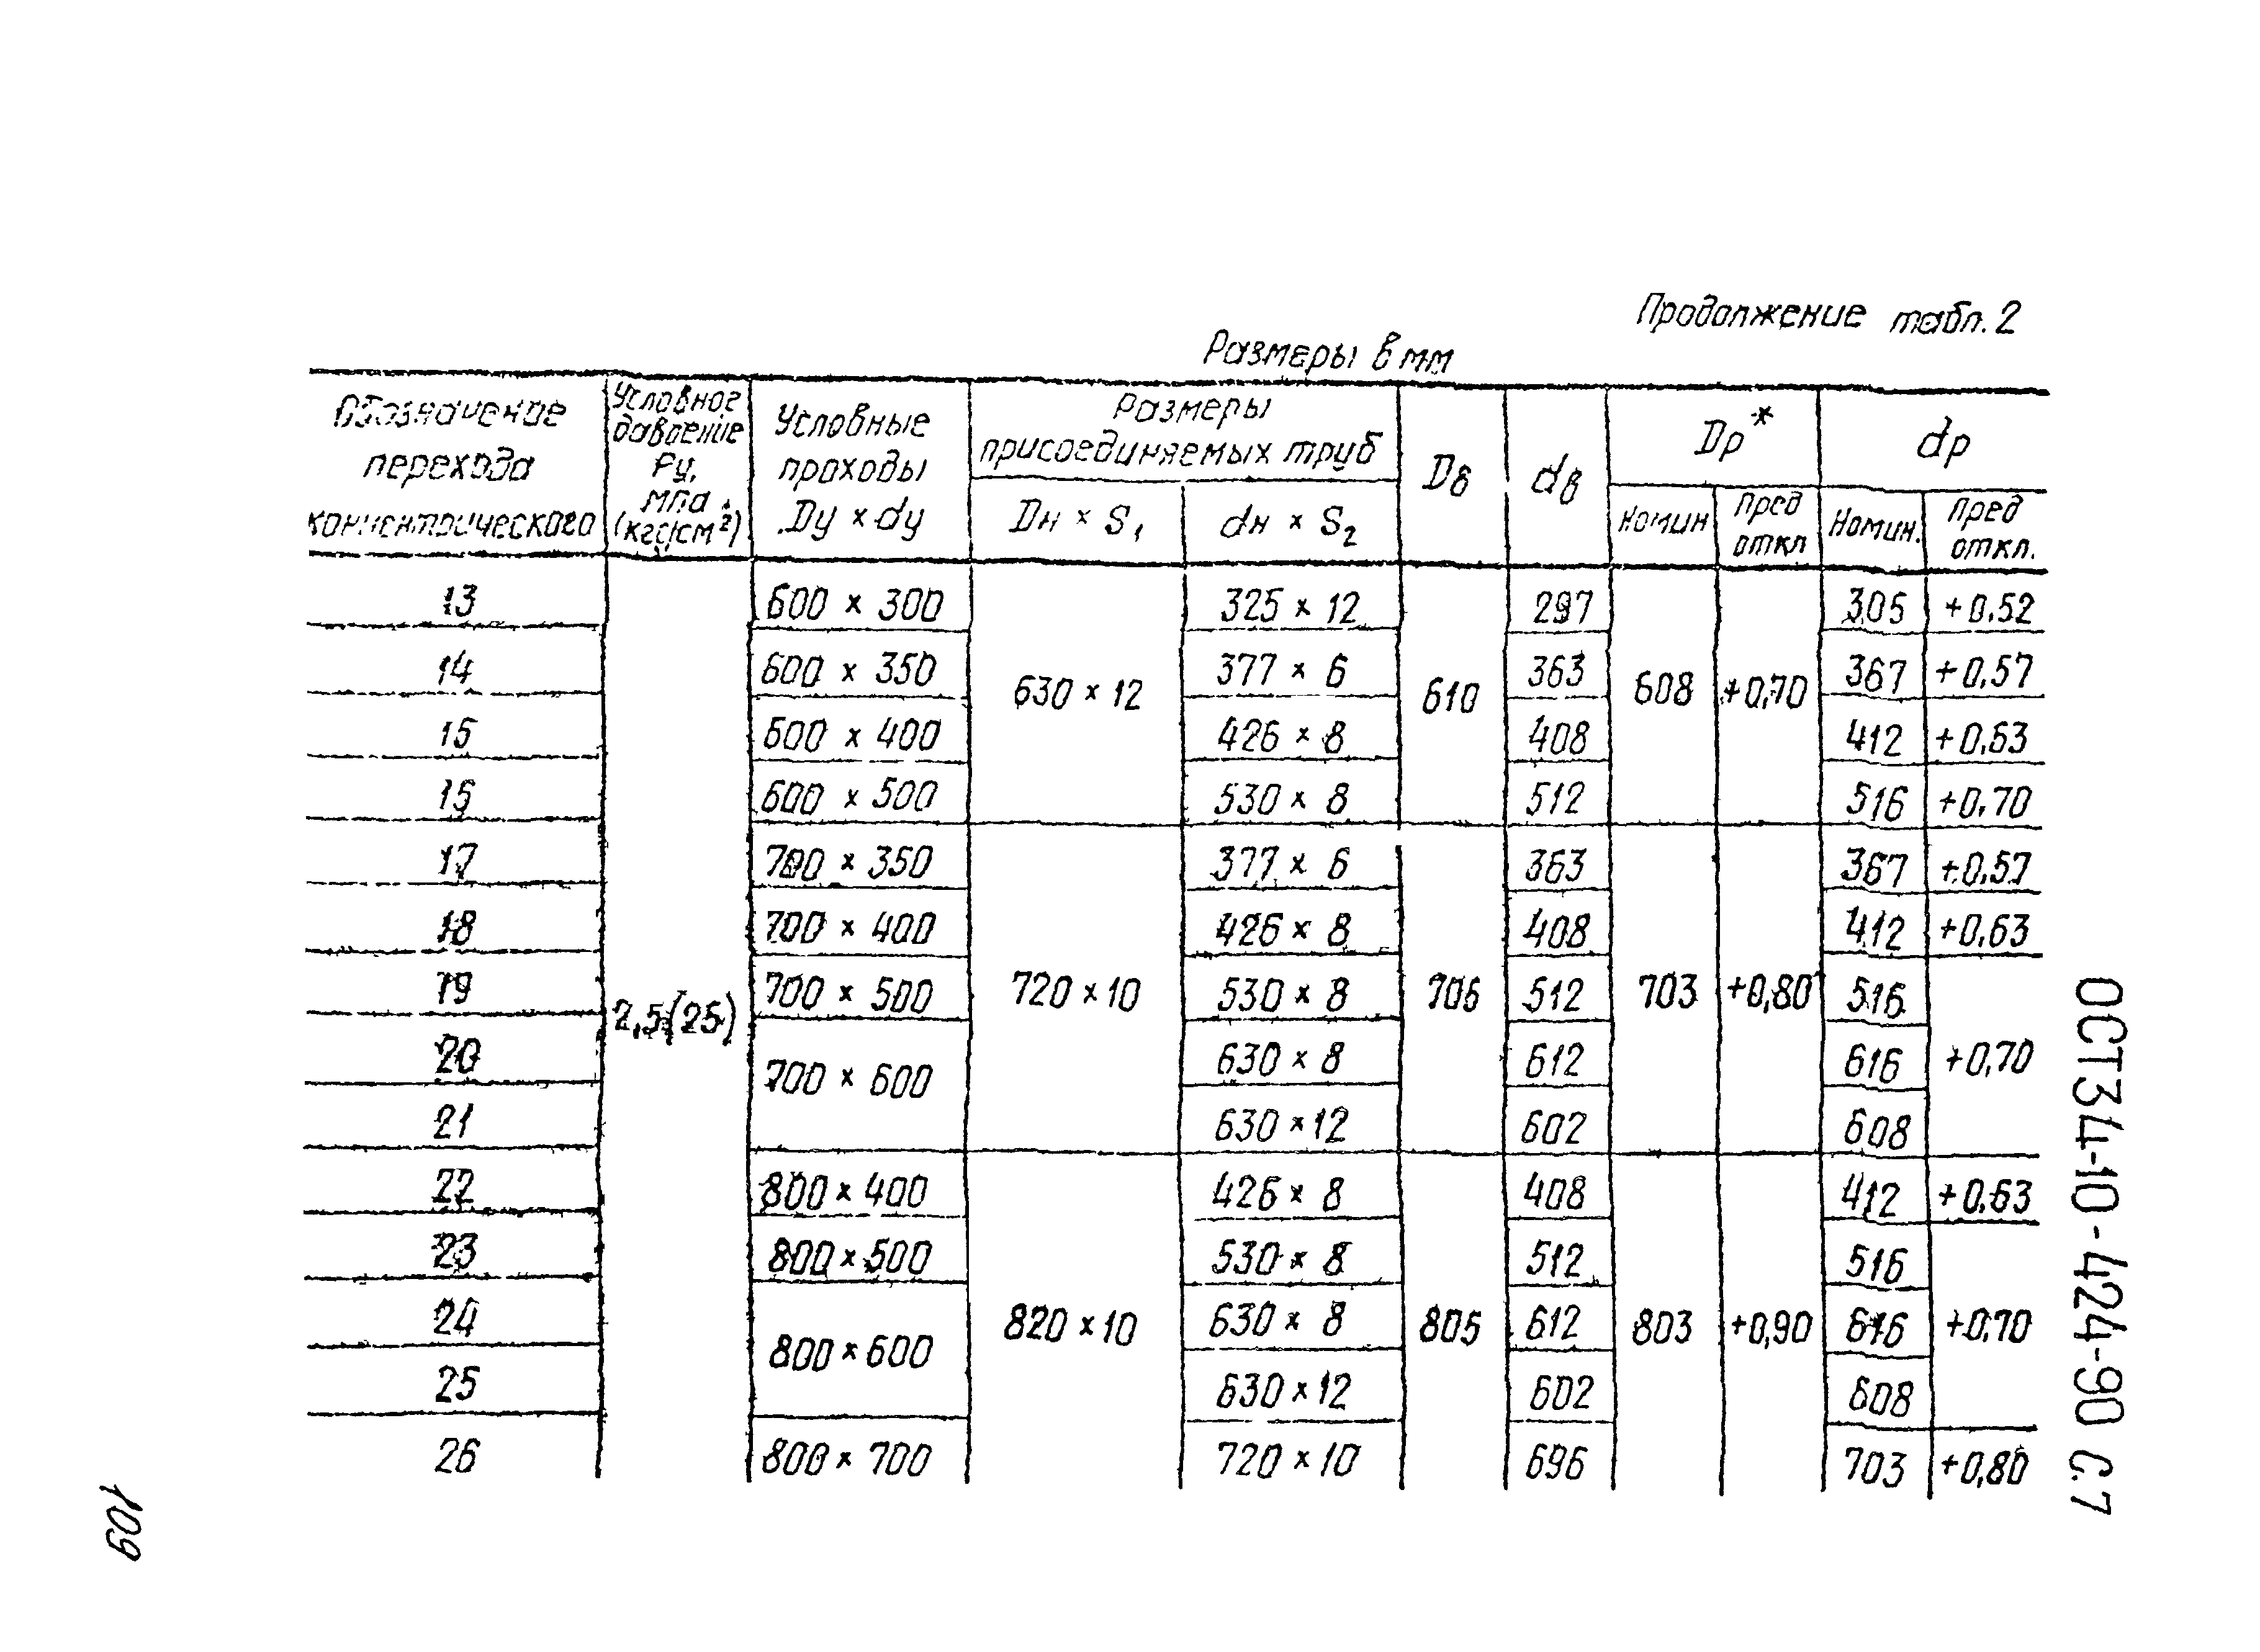 Продолжение табл. 2
Размеры в мм
Обозначение перехода концентрического
Условное давление Ру, МПа (кгс/см²)
Условные проходы Dу × dу
Размеры присоединяемых труб
Dн × S₁
dн × S₂
Dв
dв
Dр*
dр
Номин
Пред откл
Номин.
Пред откл.
13 600 × 300 325 × 12 297 305 +0,52
14 600 × 350 377 × 6 363 367 +0,57
630 × 12 610 608 +0,70
15 600 × 400 426 × 8 408 412 +0,63
16 600 × 500 530 × 8 512 516 +0,70
17 700 × 350 377 × 6 363 367 +0,57
18 700 × 400 426 × 8 408 412 +0,63
19 700 × 500 720 × 10 530 × 8 706 512 703 +0,80 516
2,5 (25)
20 630 × 8 612 616 +0,70
700 × 600
21 630 × 12 602 608
22 800 × 400 426 × 8 408 412 +0,63
23 800 × 500 530 × 8 512 516
24 820 × 10 630 × 8 805 612 803 +0,90 616 +0,70
800 × 600
25 630 × 12 602 608
26 800 × 700 720 × 10 696 703 +0,80
ОСТ 34-10-424-90 С. 7
109